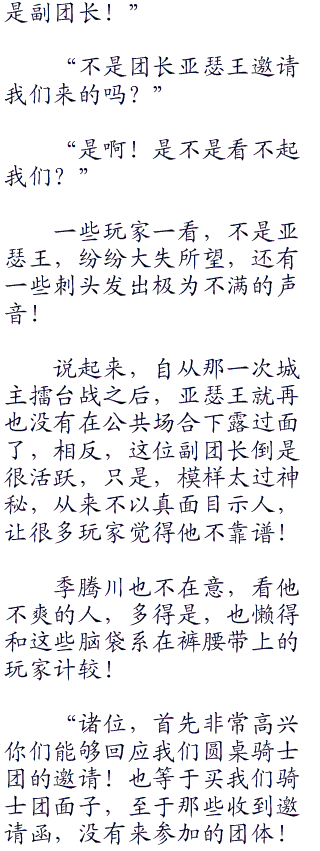 是副团长！”
“不是团长亚瑟王邀请
我们来的吗？”
“是啊！是不是看不起
我们？”
一些玩家一看，不是亚
瑟王，纷纷大失所望，还有
一些刺头发出极为不满的声
音！
说起来，自从那一次城
主擂台战之后，亚瑟王就再
也没有在公共场合下露过面
了，相反，这位副团长倒是
很活跃，只是，模样太过神
秘，从来不以真面目示人，
让很多玩家觉得他不靠谱！
季腾川也不在意，看他
不爽的人，多得是，也懒得
和这些脑袋系在裤腰带上的
玩家计较！
“诸位，首先非常高兴
你们能够回应我们圆桌骑士
团的邀请！也等于买我们骑
士团面子，至于那些收到邀
请函，没有来参加的团体！